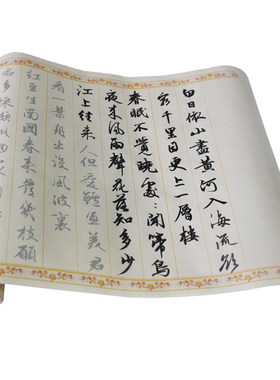 白日依山盡黄河入海流欲
窮千里目更上一層楼
春眠不覺曉處々聞啼鳥
夜来風雨聲花落知多少
江上往来人但愛鱸魚美君
看一葉舟出没風波裏
红豆生南國春来發幾枝願
君多采擷此